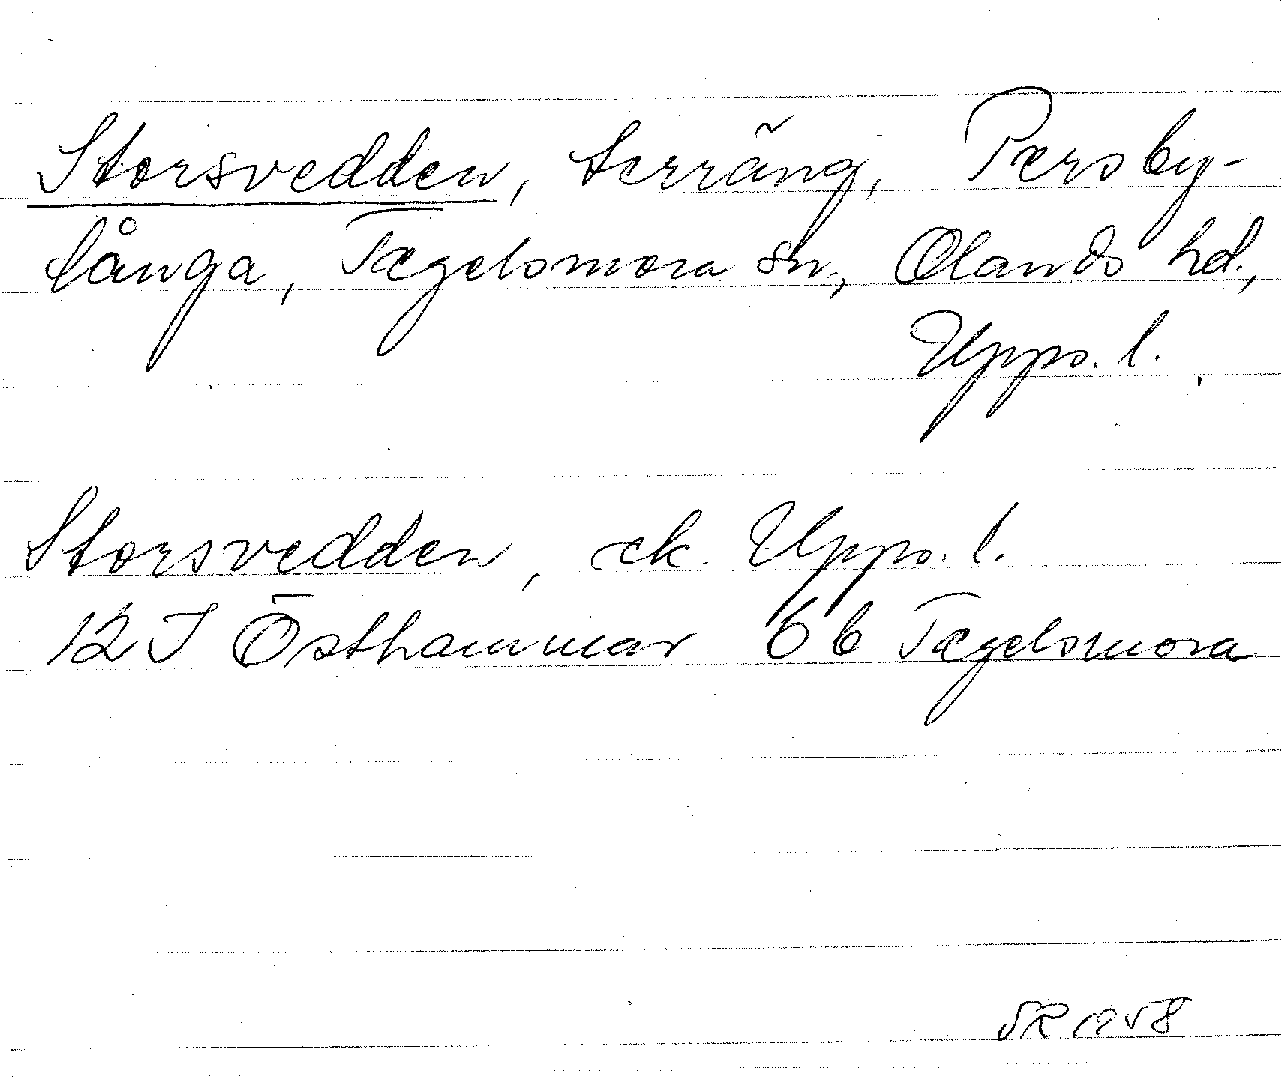 Storsvedden, terräng, Persby-
långa, Tegelsmora sn, Olands hd.,
Upps. l.
Storsvedden, ek. Upps. l.
12 I Östhammar 6b Tegelsmora
1958